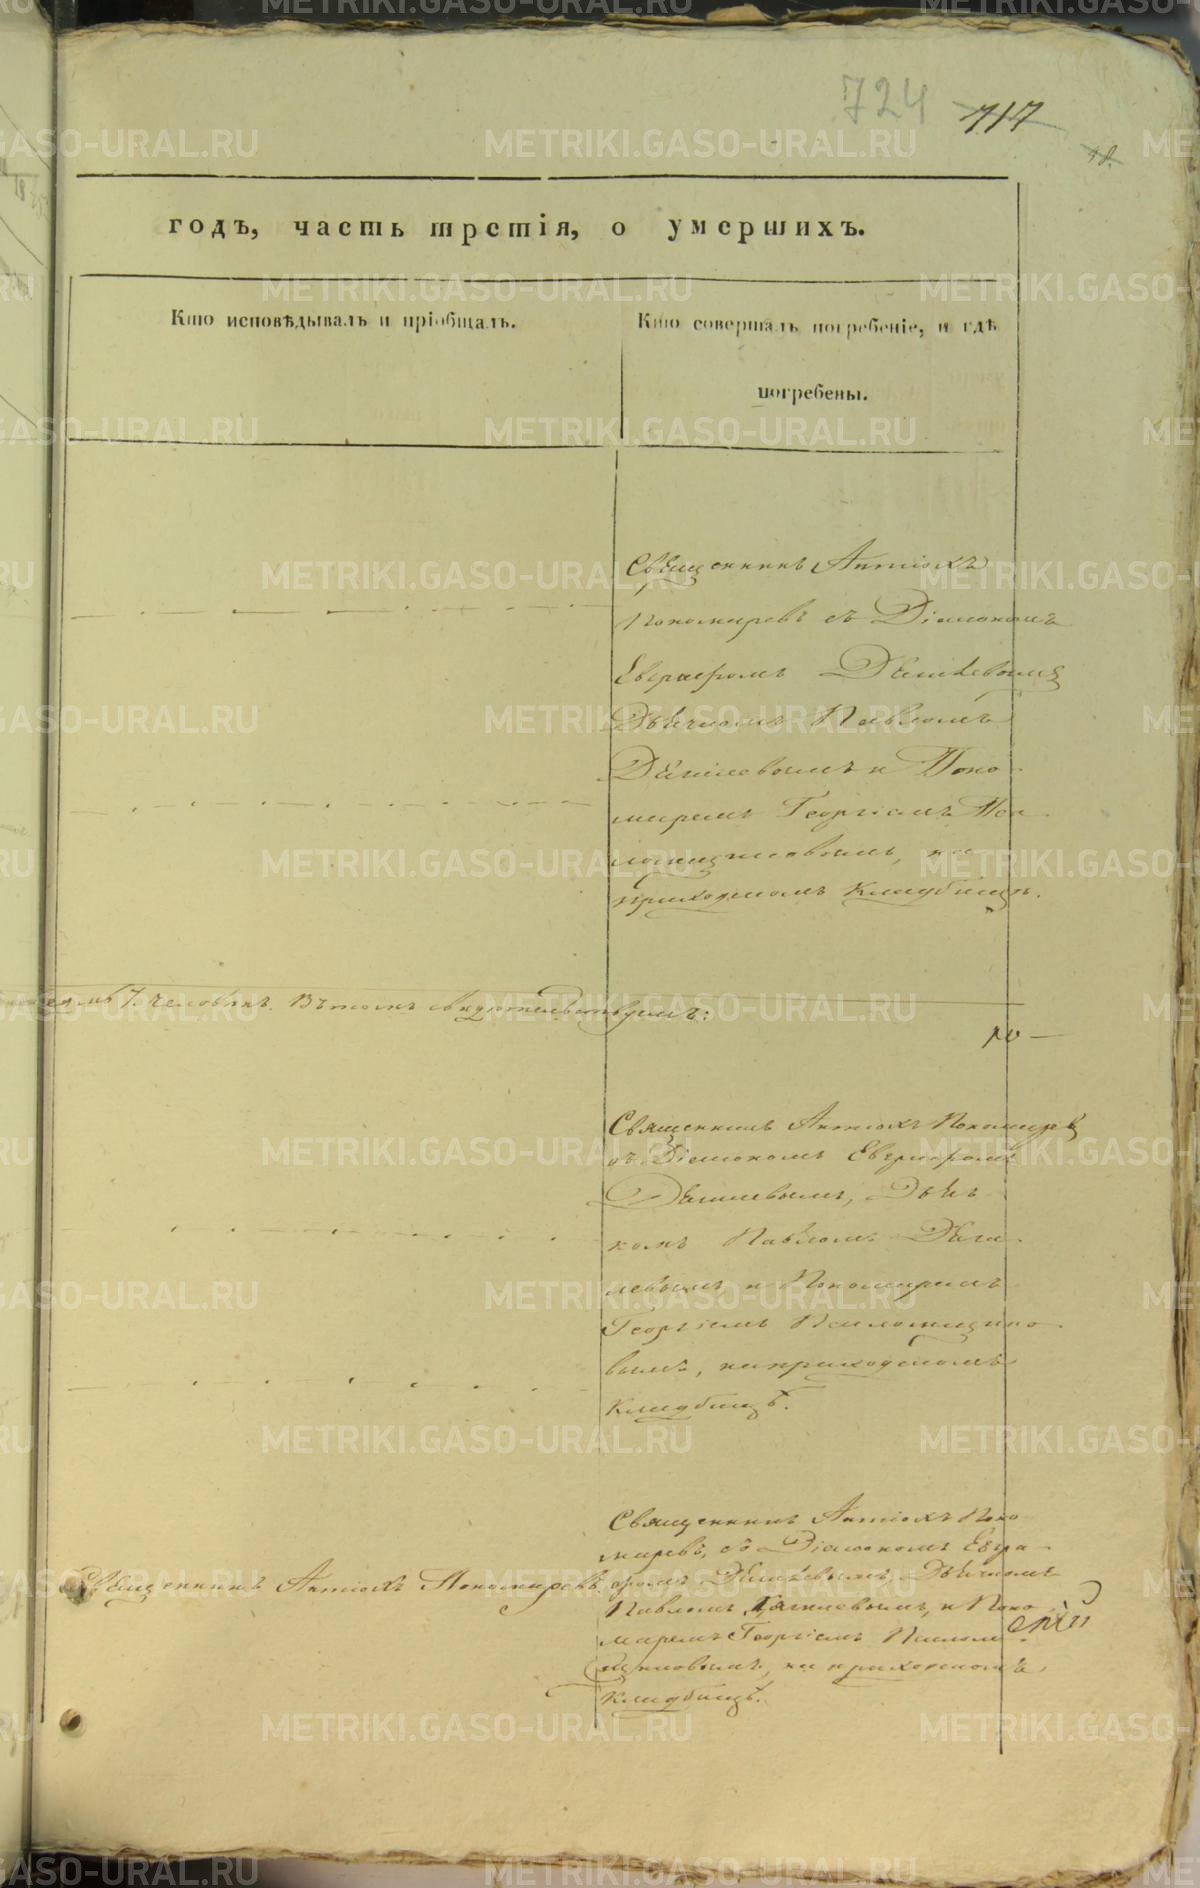 724 717
18.
годъ, часть третія, о умершихъ.
Кто исповѣдывалъ и пріобщалъ.
Кто совершалъ погребеніе, и гдѣ
погребены.
Священникъ Антіохъ
Пономаревъ съ Діакономъ
Евграфомъ Дягилевымъ
Дьячкомъ Павломъ
Дягилевымъ и Поно-
маремъ Георгіемъ
на
приходскомъ кладбищѣ.
7. человѣкъ. Въ томъ свидѣтельствуемъ:
Священникъ Антіохъ Пономарев
съ Діакономъ Евграфомъ
Дягилевымъ, Дьяч-
комъ Павломъ Дяги-
левымъ и Пономаремъ
Георгіемъ
вымъ, на приходскомъ
кладбищѣ.
Священникъ Антіохъ Пономаревъ
Священникъ Антіохъ Поно-
маревъ, съ Діакономъ Евгра-
фомъ Дягилевымъ, Дьячкомъ
Павломъ Дягилевымъ, и Поно-
маремъ Георгіемъ
на приходскомъ
кладбищѣ.
METRIKI.GASO-URAL.RU